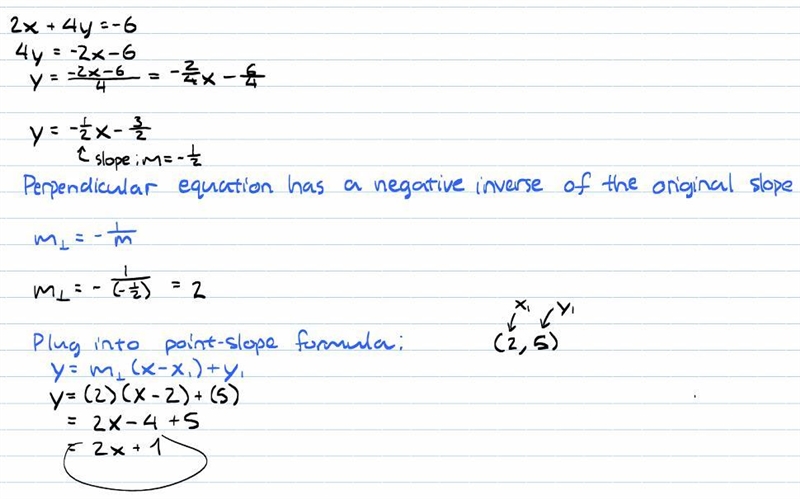 2x + 4y = -6
4y = -2x - 6
y = (-2x-6)/4 = -2/4x - 6/4
y = -1/2x - 3/2
↑ slope: m = -1/2
Perpendicular equation has a negative inverse of the original slope
m⊥ = - 1/m
m⊥ = - 1/(-1/2) = 2
x₁ y₁
Plug into point-slope formula: (2, 5)
y = m⊥(x-x₁)+y₁
y = (2)(x-2)+(5)
= 2x-4+5
= 2x+1